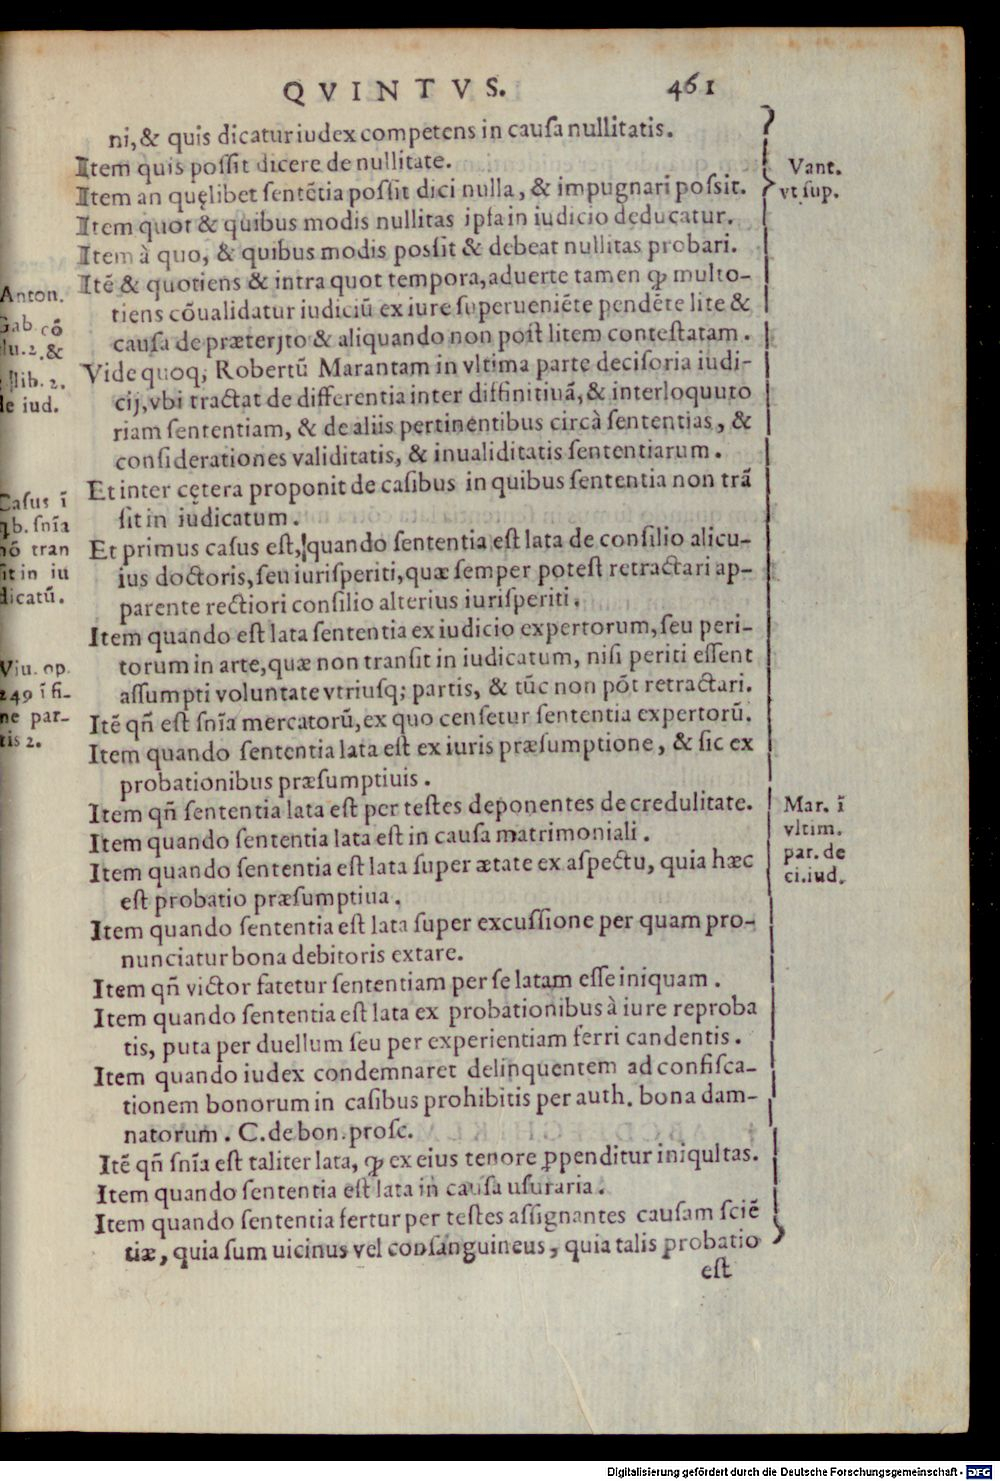 QVINTVS. 461
ni, & quis dicatur iudex competens in causa nullitatis.
Item quis possit dicere de nullitate.
Item an quęlibet sentētia possit dici nulla, & impugnari possit.
Item quot & quibus modis nullitas ipsa in iudicio deducatur.
Item à quo, & quibus modis possit & debeat nullitas probari.
Itē & quotiens & intra quot tempora, aduerte tamen ꝙ multo-
tiens cōualidatur iudiciū ex iure superueniēte pendēte lite &
causa de præterito & aliquando non post litem contestatam.
Vide quoq; Robertū Marantam in vltima parte decisoria iudi-
cij, vbi tractat de differentia inter diffinitiuā, & interloquuto
riam sententiam, & de aliis pertinentibus circà sententias, &
considerationes validitatis, & inualiditatis sententiarum.
Et inter cętera proponit de casibus in quibus sententia non trā
sit in iudicatum.
Et primus casus est, quando sententia est lata de consilio alicu-
ius doctoris, seu iurisperiti, quæ semper potest retractari ap-
parente rectiori consilio alterius iurisperiti.
Item quando est lata sententia ex iudicio expertorum, seu peri-
torum in arte, quæ non transit in iudicatum, nisi periti essent
assumpti voluntate vtriusq; partis, & tūc non pōt retractari.
Itē qñ est snīa mercatorū, ex quo censetur sententia expertorū.
Item quando sententia lata est ex iuris præsumptione, & sic ex
probationibus præsumptiuis.
Item qñ sententia lata est per testes deponentes de credulitate.
Item quando sententia lata est in causa matrimoniali.
Item quando sententia est lata super ætate ex aspectu, quia hæc
est probatio præsumptiua.
Item quando sententia est lata super excussione per quam pro-
nunciatur bona debitoris extare.
Item qñ victor fatetur sententiam per se latam esse iniquam.
Item quando sententia est lata ex probationibus à iure reproba
tis, puta per duellum seu per experientiam ferri candentis.
Item quando iudex condemnaret delinquentem ad confisca-
tionem bonorum in casibus prohibitis per auth. bona dam-
natorum. C. de bon. prosc.
Itē qñ snīa est taliter lata, ꝙ ex eius tenore ꝑpenditur iniqultas.
Item quando sententia est lata in causa usuraria.
Item quando sententia fertur per testes assignantes causam sciē
tiæ, quia sum uicinus vel consanguineus, quia talis probatio
est
Vant.
vt sup.
Mar. ī
vltim.
par. de
ci. iud.
Anton.
Gab. cō
&
lib. 2.
iud.
Casus ī
qb. snīa
nō tran
sit in iu
dicatū.
Viu. op.
249 ī fi-
ne par-
tis 2.
Digitalisierung gefördert durch die Deutsche Forschungsgemeinschaft - DFG